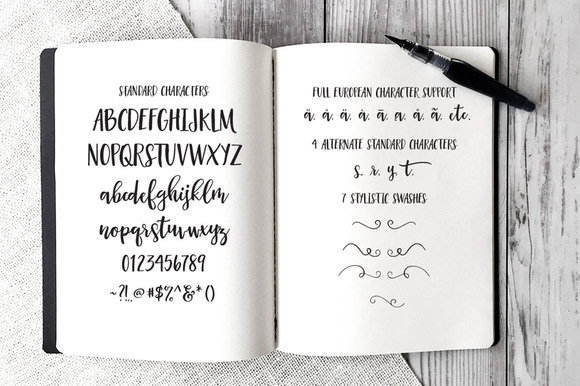 STANDARD CHARACTERS
ABCDEFGHIJKLM
NOPQRSTUVWXYZ
abcdefghijklm
nopqrstuvwxyz
0123456789
~?!..@#$%^&*()
FULL EUROPEAN CHARACTER SUPPORT
ă. á. ä. à. ā. ą. å. ã. etc.
4 ALTERNATE STANDARD CHARACTERS
s. r. y. t.
7 STYLISTIC SWASHES